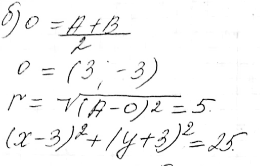 б) O = A+B / 2
O = (3; -3)
r = √(A-O)2 = 5.
(x-3)² + (y+3)² = 25.